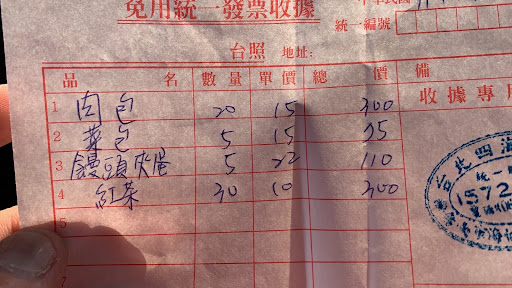 免用統一發票收據
統一編號
台照 地址:
品名 數量 單價 總價 備
收據專用
1 肉包 20 15 300
2 菜包 5 15 75
3 饅頭夾蛋 5 22 110
4 紅茶 30 10 300
5
台北四海
統一
1572